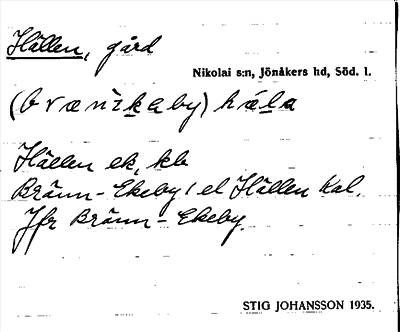 Hällen, gård
Nikolai s:n, Jönåkers hd, Söd. l.
(brænìkaby) hála
Hällen ek, kb
Bränn-Ekeby l. el Hällen Kal.
Jfr Bränn-Ekeby.
STIG JOHANSSON 1935.